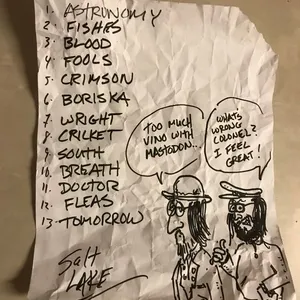 1. ASTRONOMY
2. FISHES
3. BLOOD
4. FOOLS
5. CRIMSON
6. BORISKA
7. WRIGHT
8. CRICKET
9. SOUTH
10. BREATH
11. DOCTOR
12. FLEAS
13. TOMORROW
SALT
LAKE
TOO MUCH
VINO WITH
MASTODON..
WHATS
WRONG
COLONEL?
I FEEL
GREAT!